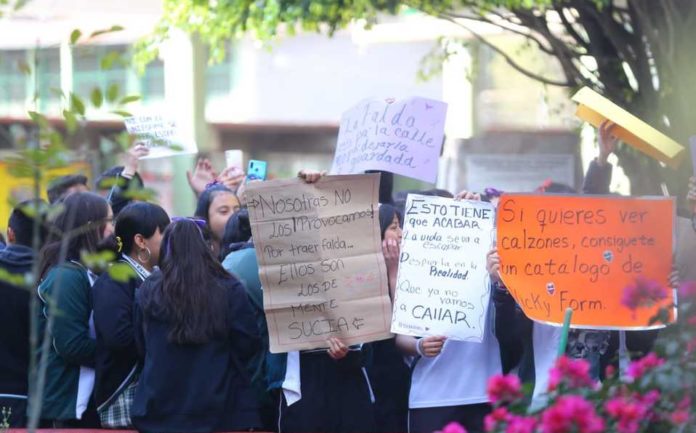 La Falda
es pa la calle
no pa dejarla
guardada
¡Nosotras NO
los provocamos!
Por traer falda...
Ellos SON
LOS DE
MENTE
SUCIA
ESTO TIENE
que ACABAR
La vida se va a
escapar
Despierta en la
Realidad.
Ya no
vamos
a CAllAR.
Si quieres ver
calzones, consiguete
un catalogo de
Vicky Form.